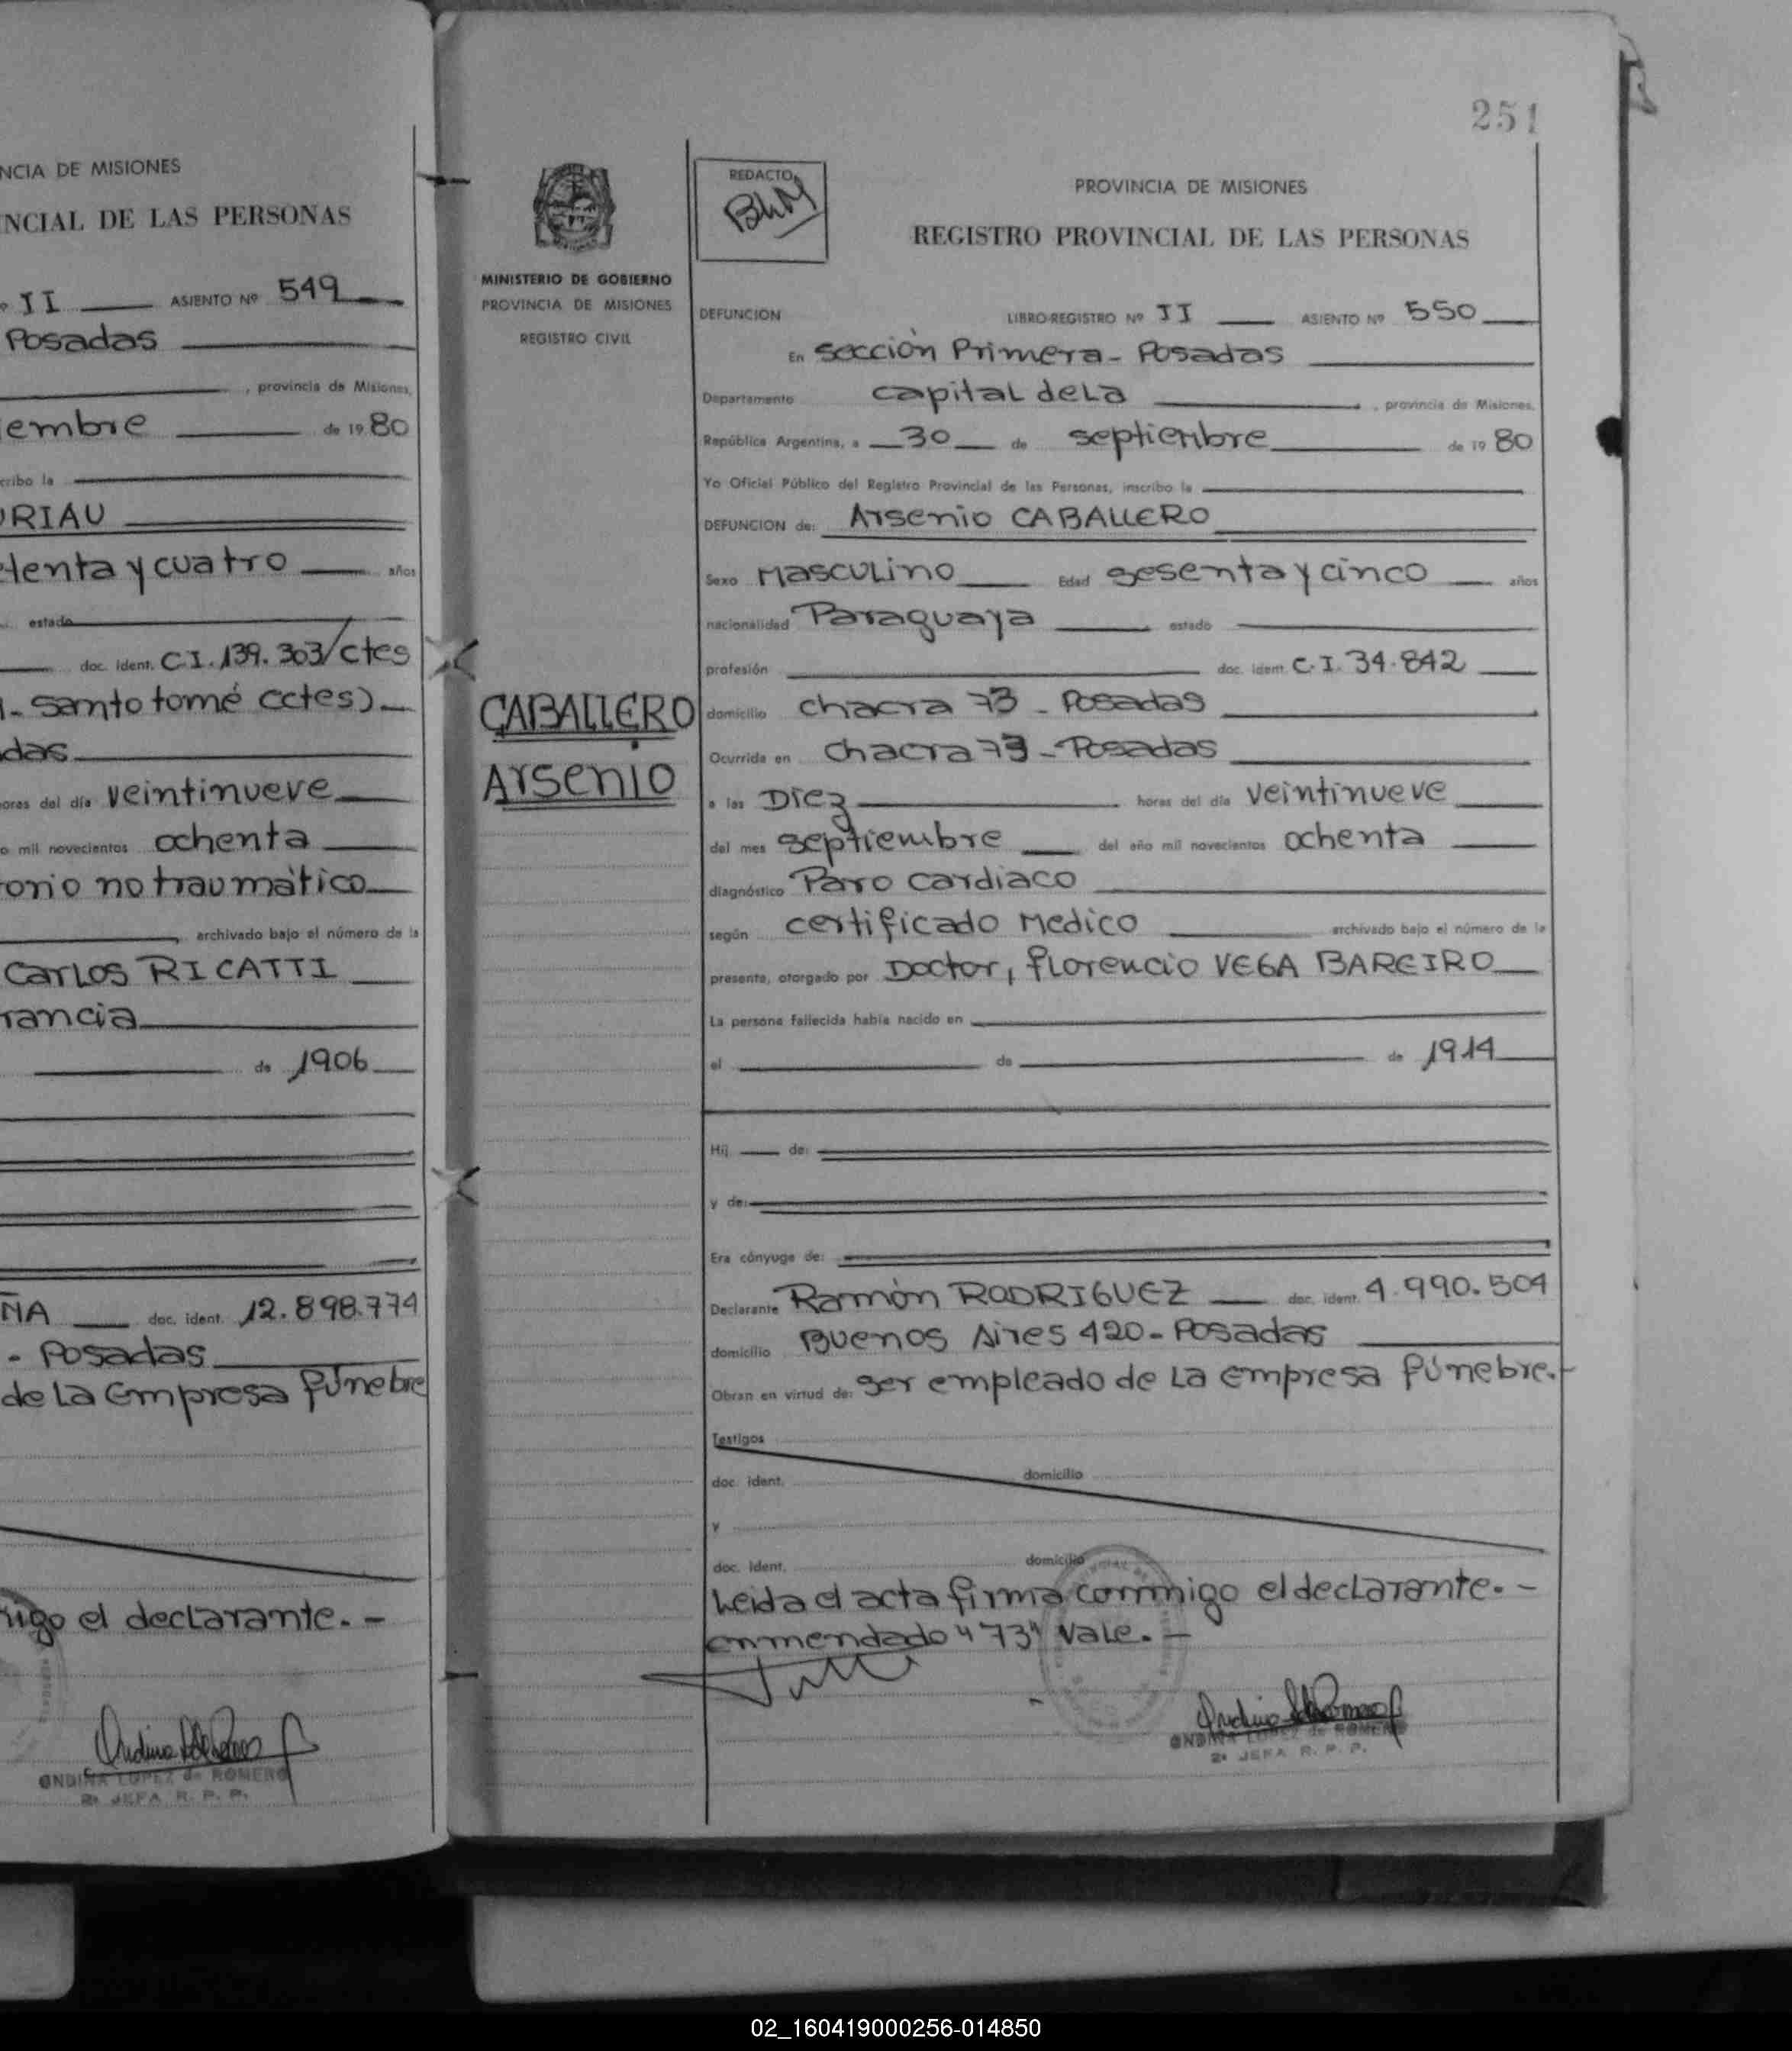 NCIA DE MISIONES
NCIAL DE LAS PERSONAS
º II ASIENTO Nº 549
Posadas
, provincia de Misiones,
iembre de 19 80
cribo la
URIAU
etenta y cuatro años
estado
doc. ident. C.I. 139.303/ctes
- santo tomé cctes)
das
oras del día veintinueve
o mil novecientos ochenta
orio no traumático
archivado bajo el número de la
Carlos RICATTI
rancia
de 1906
ÑA doc. ident. 12.898.774
- Posadas
de La Empresa fúnebre
migo el declarante. -
ONDINA LOPEZ de ROMERO
2ª JEFA R. P. P.
251
MINISTERIO DE GOBIERNO
PROVINCIA DE MISIONES
REGISTRO CIVIL
CABALLERO
Arsenio
REDACTO
PROVINCIA DE MISIONES
REGISTRO PROVINCIAL DE LAS PERSONAS
DEFUNCION LIBRO-REGISTRO Nº II ASIENTO Nº 550
En sección Primera - Posadas
Departamento capital de La , provincia de Misiones,
República Argentina, a 30 de septiembre de 19 80
Yo Oficial Público del Registro Provincial de las Personas, inscribo la
DEFUNCION de: Arsenio CABALLERO
Sexo Masculino Edad sesenta y cinco años
nacionalidad Paraguaya estado
profesión doc. ident. C.I. 34.842
domicilio chacra 73 - Posadas
Ocurrida en chacra 73 - Posadas
a las Diez horas del día veintinueve
del mes septiembre del año mil novecientos ochenta
diagnóstico Paro cardiaco
según certificado Medico archivado bajo el número de la
presente, otorgado por Doctor, florencio VEGA BAREIRO
La persona fallecida había nacido en
el de de 1914
Hij de:
y de:
Era cónyuge de:
Declarante Ramón RODRIGUEZ doc. ident. 4.990.504
domicilio Buenos Aires 420 - Posadas
Obran en virtud de: ser empleado de La Empresa fúnebre.-
Testigos
doc. ident. domicilio
y
doc. ident. domicilio
Leida el acta firma conmigo el declarante. -
enmendado "73" vale. -
ONDINA LOPEZ de ROMERO
2ª JEFA R. P. P.
02_160419000256-014850